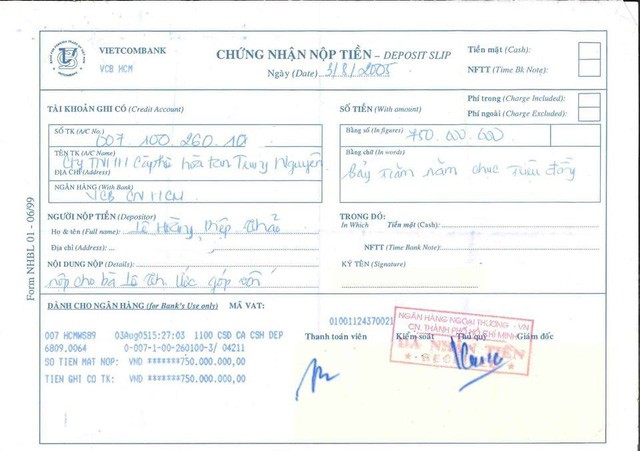 VIETCOMBANK
VCB HCM
CHỨNG NHẬN NỘP TIỀN – DEPOSIT SLIP
Ngày (Date) 3/8/2005
Tiền mặt (Cash):
NFTT (Time Bk Note):
Phí trong (Charge Included):
Phí ngoài (Charge Excluded):
TÀI KHOẢN GHI CÓ (Credit Account)
SỐ TK (A/C No.) 007.100.260.10
TÊN TK (A/C Name)
Cty TNHH Càphê hòa tan Trung Nguyên
ĐỊA CHỈ (Address)
NGÂN HÀNG (With Bank)
VCB CN HCM
SỐ TIỀN (With amount)
Bằng số (In figures) 750.000.000
Bằng chữ (In words)
Bảy trăm năm chục triệu đồng
NGƯỜI NỘP TIỀN (Depositor)
Họ & tên (Full name): Lê Hoàng Diệp Thảo
Địa chỉ (Address):
NỘI DUNG NỘP (Details):
nộp cho bà Lê Thị Ước góp vốn
TRONG ĐÓ:
In Which
Tiền mặt (Cash):
NFTT (Time Bank Note):
KÝ TÊN (Signature)
Form NHBL 01 - 06/99
DÀNH CHO NGÂN HÀNG (for Bank's Use only) MÃ VAT:
01001124370021
007 HCMWS89 03Aug0515:27:03 1100 CSD CA CSH DEP
6809.0064 0-007-1-00-260100-3/ 04211
SO TIEN MAT NOP: VND *******750.000.000,00
TIEN GHI CO TK: VND *******750.000.000,00
Thanh toán viên Kiểm soát Thủ quỹ Giám đốc
NGÂN HÀNG NGOẠI THƯƠNG - VN
CN. THÀNH PHỐ HỒ CHÍ MINH
ĐÃ NHẬN TIỀN